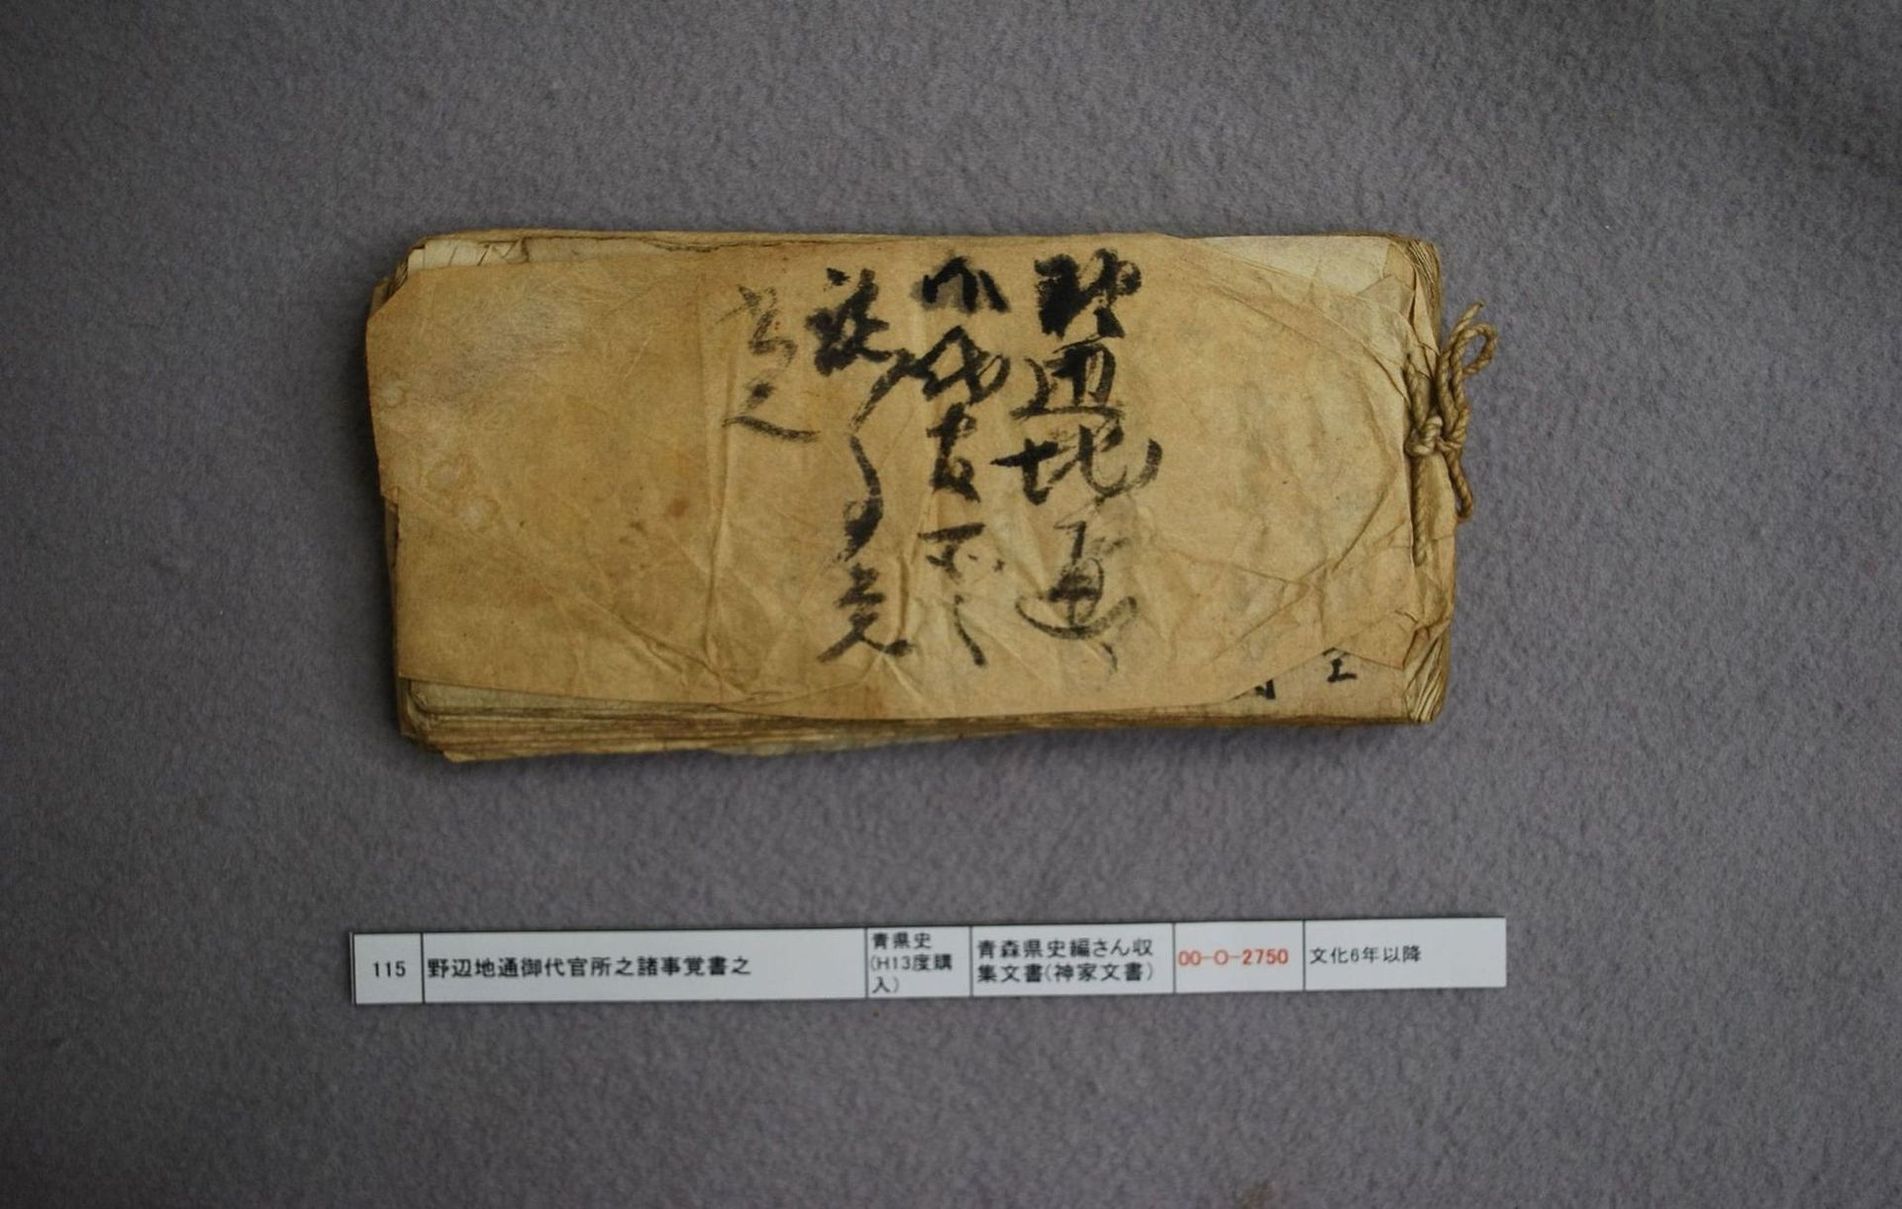 野辺地通
御代官所之
諸事覚
書之
115
野辺地通御代官所之諸事覚書之
青県史
(H13度購
入)
青森県史編さん収
集文書(神家文書)
00-O-2750
文化6年以降